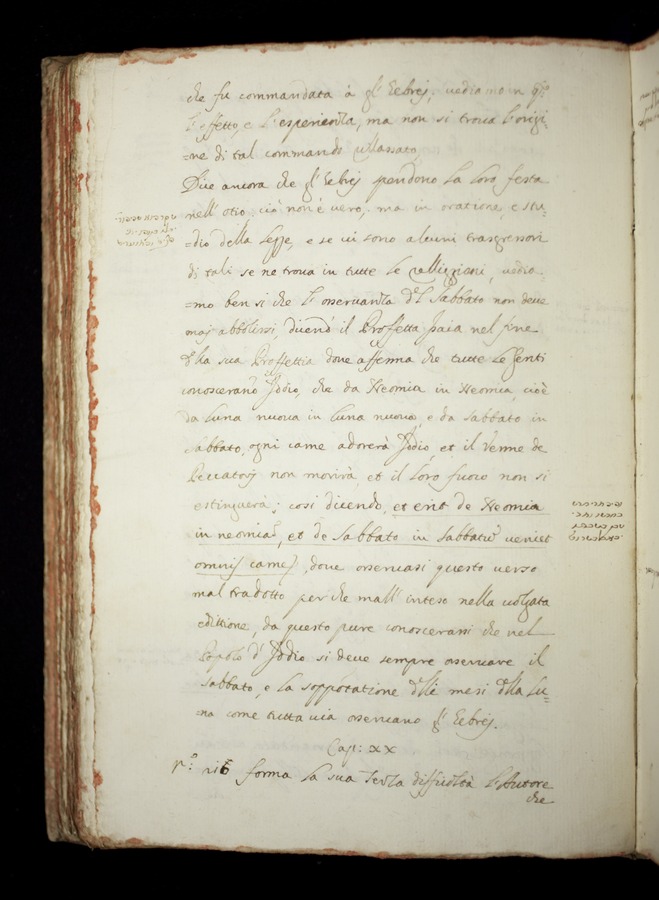 che fu commandata à gl' Eebrej, vediamo in q.to
l'effetto, e l'esperienza, ma non si trova l'origi
=ne di tal commando rillassato.
Dice ancora che gl' Eebrej spendono la loro festa
nell' otio, ciò non è vero, ma in oratione, e stu=
=dio della legge, e se vi sono alcuni trasgressori
di tali se ne trova in tutte le relligioni, vedia=
=mo ben si che l'osservanza del Sabbato non deve
maj abbolirsi, dicend'o il Proffetta Isaia nel fine
d'lla sua Proffettia dove afferma che tutte le genti
conosceranno Iddio, che da Neomia in Neomia, cioè
da luna nuova in luna nuova, e da Sabbato in
Sabbato, ogni carne adorerà Iddio, et il Verme de
Peccatorj non morirà, et il loro fuoco non si
estinguerà; così dicendo, et erit de Neomia
in neomia, et de Sabbato in Sabbatu veniet
omnis carnes, dove osservasi questo verso
mal tradotto perche mall' inteso nella volgata
edittione, da questo pure conoscerassi che nel
Popolo d' Iddio si deve sempre osservare il
Sabbato, e la sopputatione dlle mesi d'lla lu=
=na come tutta via osservano gl' Eebrej.
Cap: XX
forma la sua terza difficoltà l'Autore
che